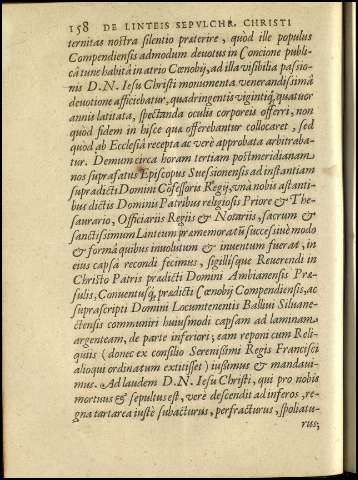 158 DE LINTEIS SEPVLCHR. CHRISTI
ternitas nostra silentio præterire, quòd ille populus
Compendiensis admodum deuotus in Concione publi-
câ tunc habitâ in atrio Cœnobij, ad illa visibilia passio-
nis D. N. Iesu Christi monumenta venerandissimâ
deuotione afficiebatur, quadringentis vigintiq; quatuor
annis latitata, spectanda oculis corporeis offerri, non
quòd fidem in hisce qua offerebantur collocaret, sed
quòd ab Ecclesiâ recepta ac verè approbata arbitraba-
tur. Demum circa horam tertiam postmeridianam
nos suprafatus Episcopus Suessionensis ad instantiam
supradicti Domini Cōfessoris Regij, vnà nobis astanti-
bus dictis Dominis Patribus religiosis Priore & The-
saurario, Officiariis Regiis & Notariis, sacrum &
sanctissimum Linteum præmemoratū successiuè modo
& formâ quibus inuolutum & inuentum fuerat, in
eius capsâ recondi fecimus, sigillisque Reuerendi in
Christo Patris prædicti Domini Ambianensis Præ-
sulis, Conuentusq; prædicti Cœnobij Compendiensis, ac
suprascripti Domini Locumtenentis Balliui Siluane-
ctensis communiri huiusmodi capsam ad laminam
argenteam, de parte inferiori; eam reponi cum Reli-
quiis (donec ex consilio Serenissimi Regis Francisci
alioqui ordinatum extitisset) iussimus & mandaui-
mus. Ad laudem D. N. Iesu Christi, qui pro nobis
mortuus & sepultus est, verè descendit ad inferos, re-
gna tartarea iustè subacturus, perfracturus, spoliatu-
rus;